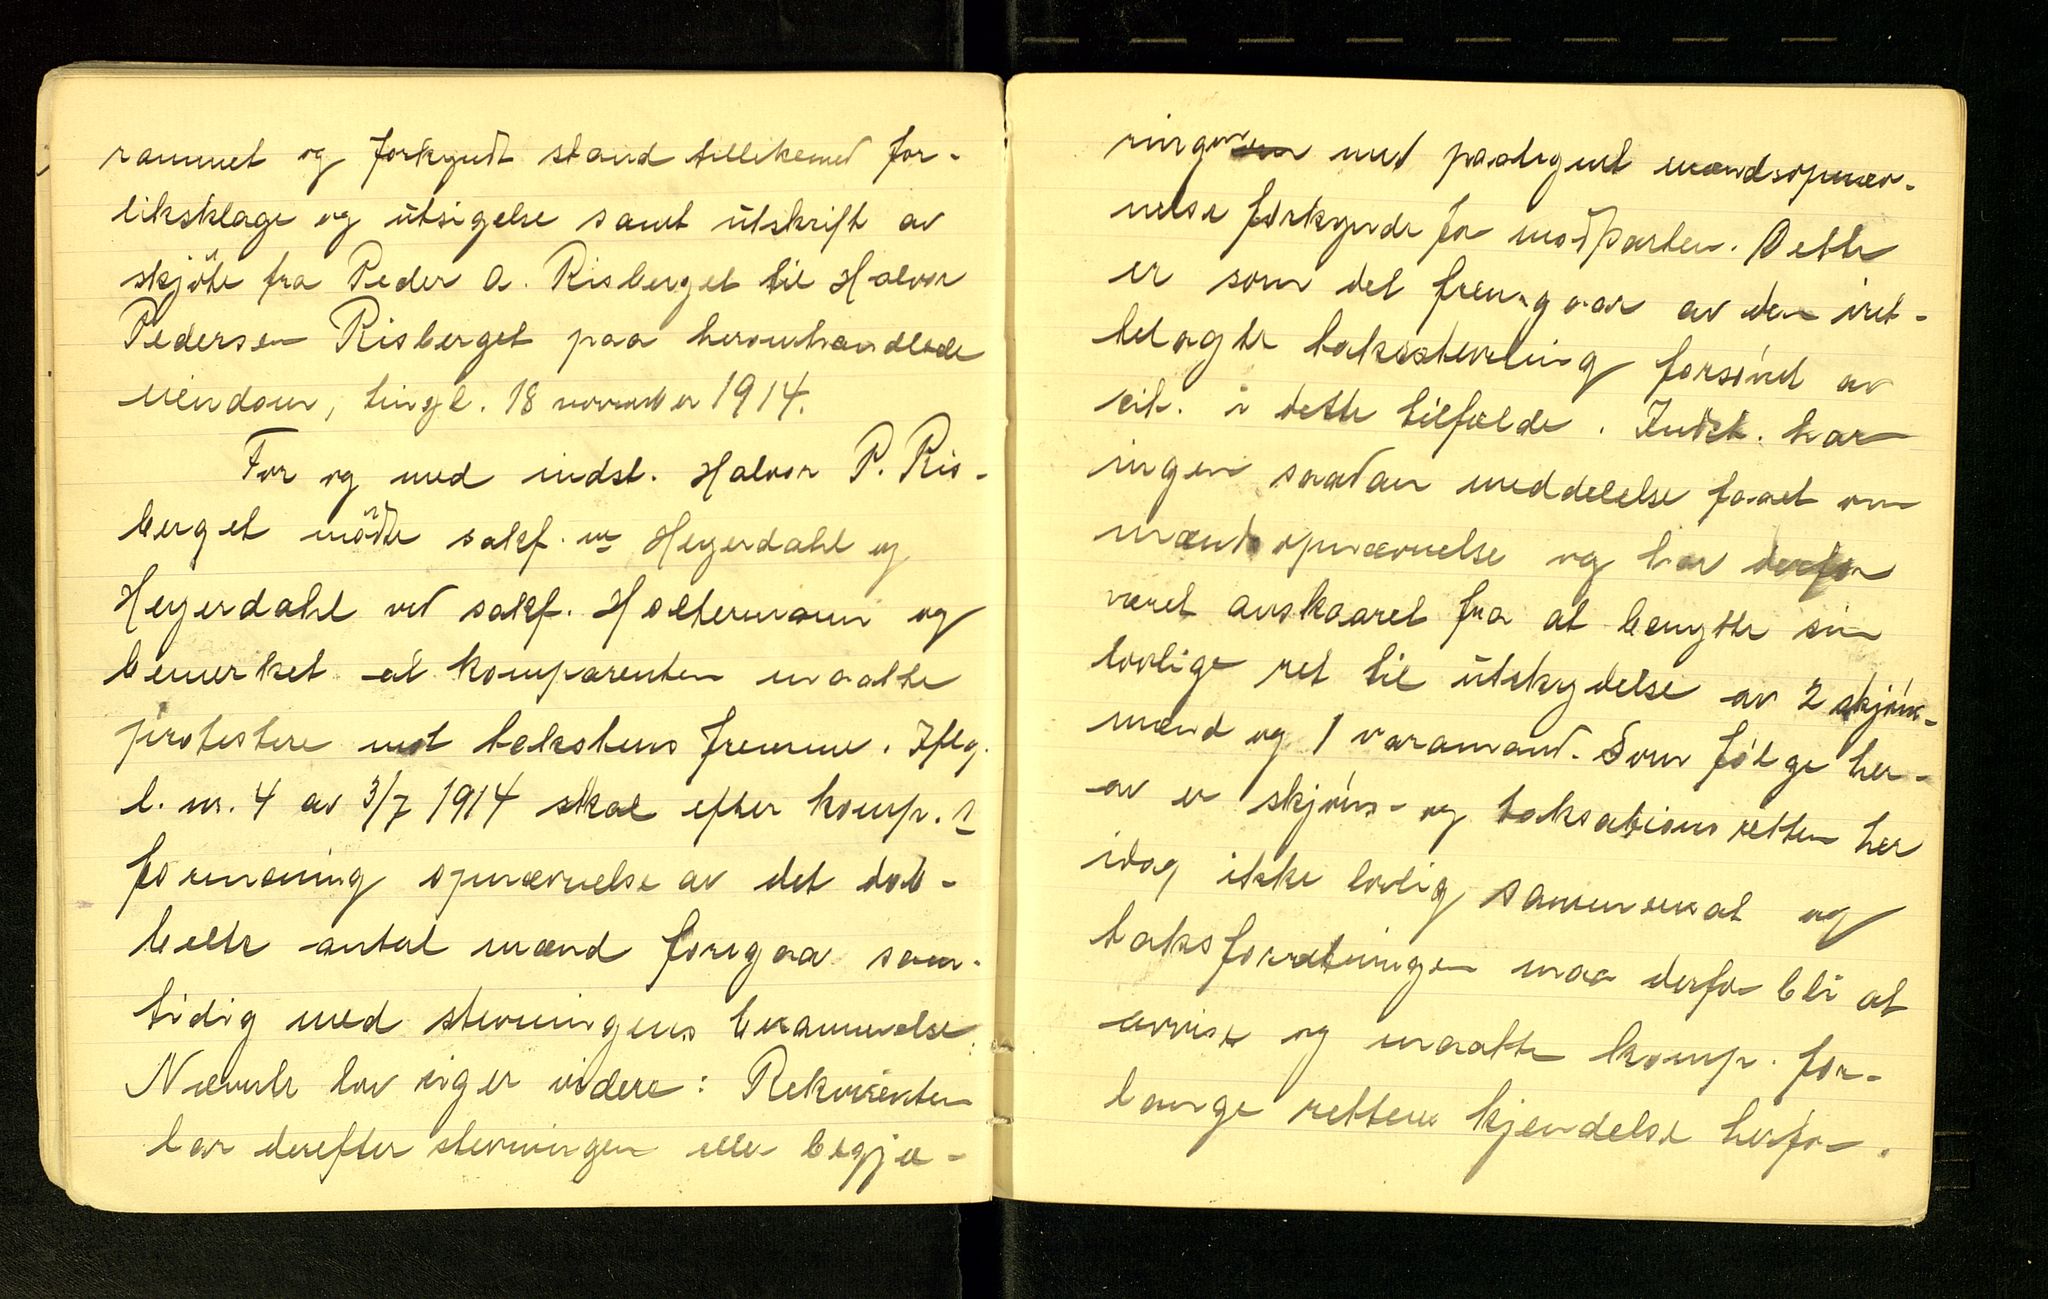 rammet og forkyndt stand tillikemed for-
liksklage og utsigelse samt utskrift av
skjöte fra Peder A. Risberget til Halvor
Pedersen Risberget paa heromhandlede
eiendom, tingl. 18 november 1914.
For og med indst. Halvor P. Ris-
berget mödte sakf. ne Heyerdahl og
Heyerdahl ved sakf. Holtermann og
bemerket at komparenten maatte
protestere mot takstens fremme. Iflg.
l. nr. 4 av 3/7 1914 skal efter komp. s
formening opnævnelse av det dob-
belte antal mænd foregaa sam-
tidig med stevningens berammelse.
Nævnte lov siger videre: Rekvirenten
lar derefter stevningen eller begjæ-
ringen med paategnet mændsopnæv-
nelse forkynde for motparten. Dette
er som det fremgaar av den iret-
telagte takststevning forsömt av
cit. i dette tilfælde. Indst. har
ingen saadan meddelelse faaet om
mændsopnævnelse og har derfor
været avskaaret fra at benytte sin
lovlige ret til utskydelse av 2 skjöns-
mænd og 1 varamand. Som fölge her-
av er skjöns- og taksationsretten her
idag ikke lovlig sammensat og
taksforretningen maa derfor bli at
avvise og maatte komp. for-
lange rettens kjendelse herfor.